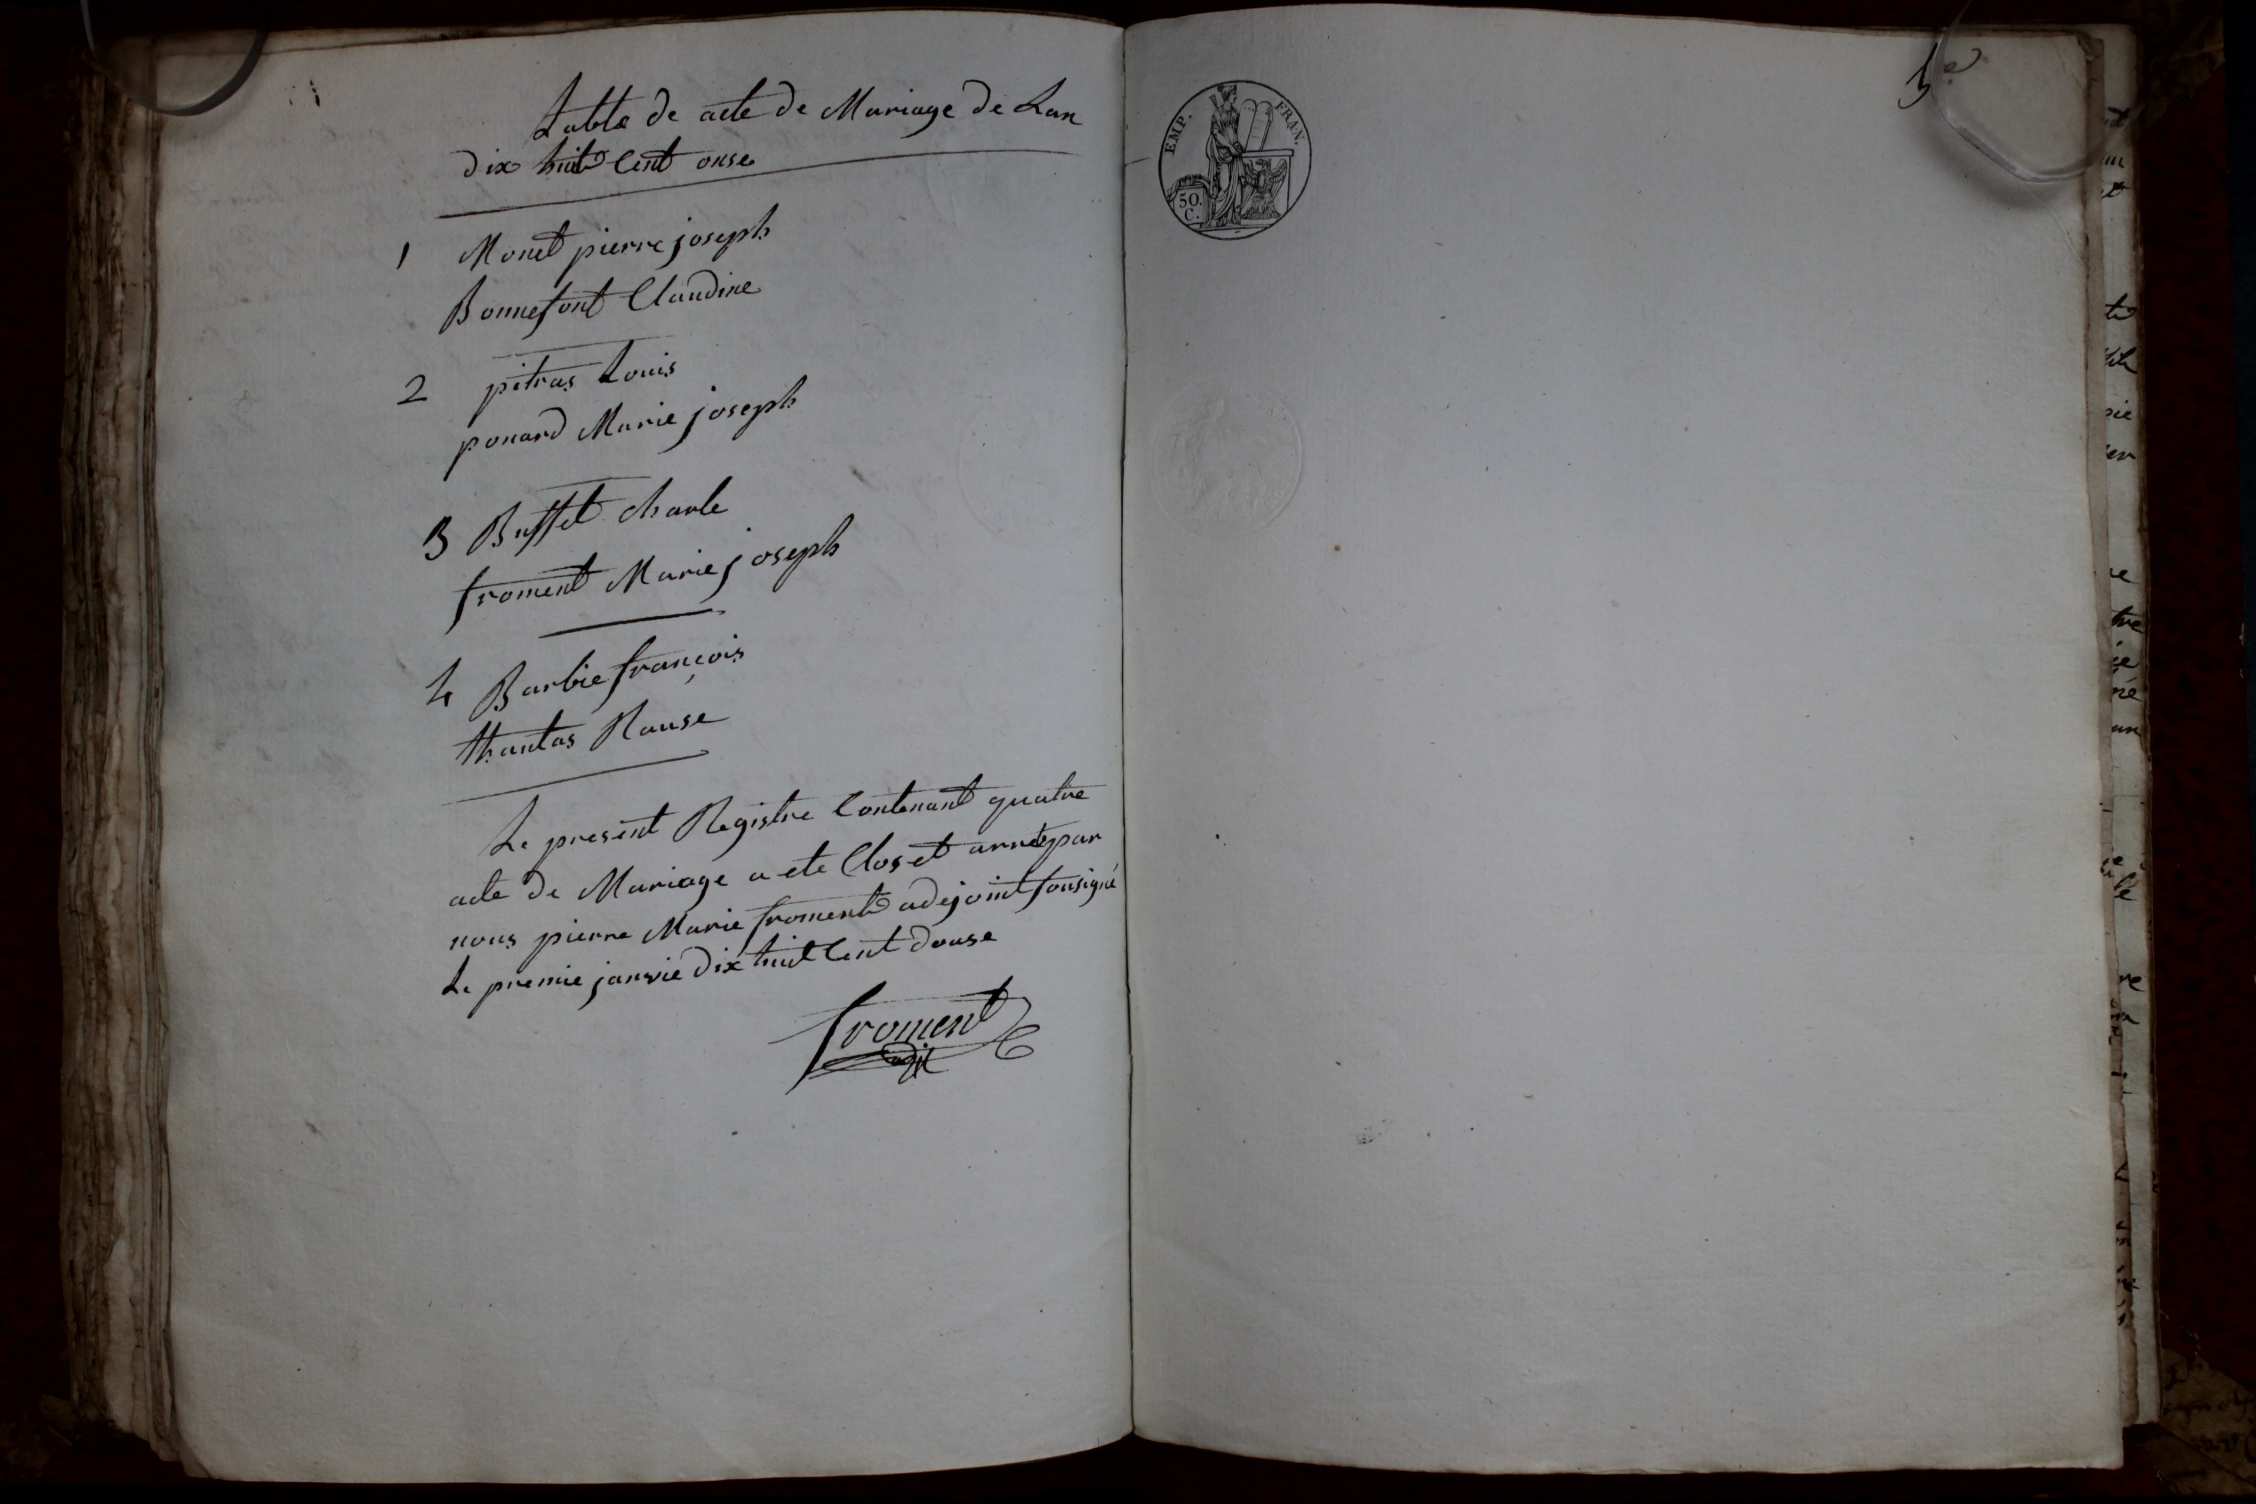 table de acte de Mariage de Lan
dix huit Cent onse
1 Monet pierre joseph
Bonnefont Claudine
2 pitras Louis
ponard Marie joseph
3 Buffet charle
froment Marie joseph
4 Barbie françois
thantas Rause
Le present Registre Contenant quatre
acte de Mariage a ete Clos et arrete par
nous pierre Marie froment adejoint sousigné
Le premie janvie dix huit Cent douse
froment
adjt
EMP. FRAN.
50.
C.